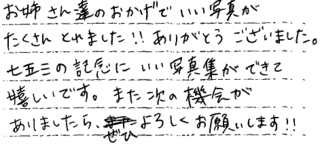 お姉さん達のおかげで いい写真が
たくさん とれました!! ありがとう ございました。
七五三の記念に いい写真集ができて
嬉しいです。また次の機会が
ありましたら、ぜひ よろしく お願いします!!